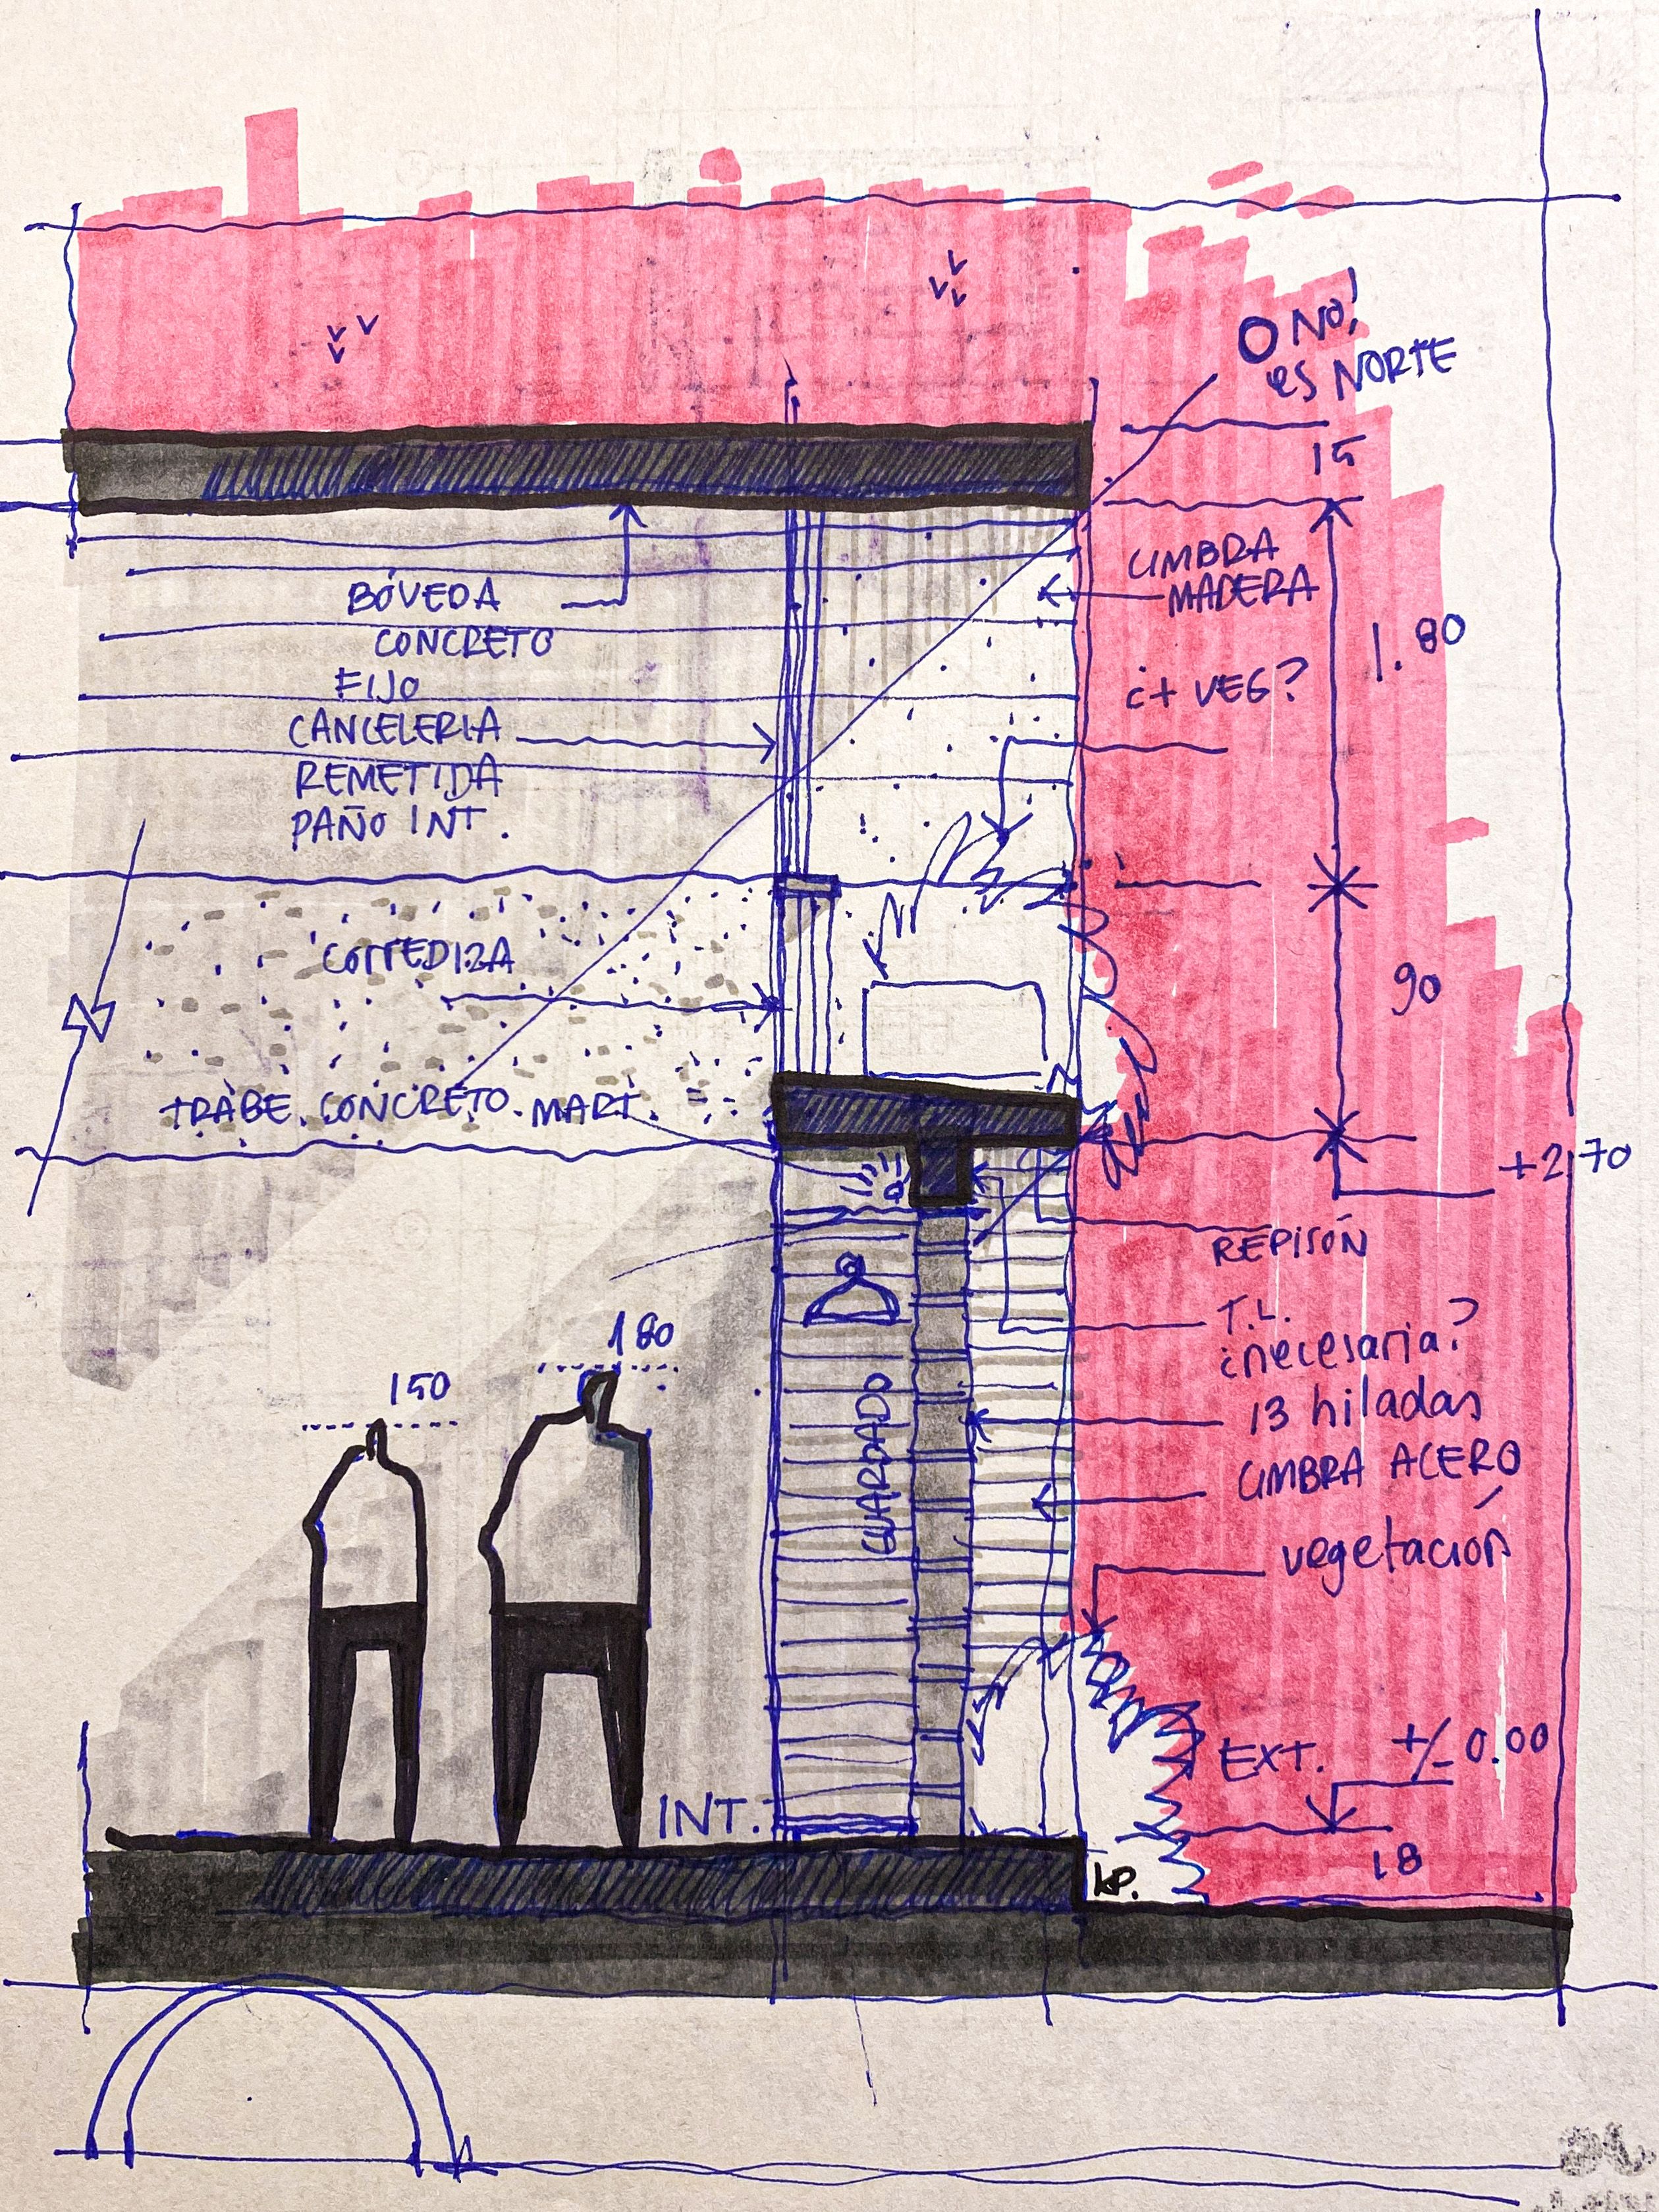 O NO!
es NORTE
15
BÓVEDA
CONCRETO
FIJO
CANCELERIA
REMETIDA
PAÑO INT.
CIMBRA
MADERA
1.80
¿+ VEG?
CORREDIZA
90
TRABE. CONCRETO. MART.
+2,70
REPISÓN
T.L.
¿necesaria?
13 hiladas
CIMBRA ACERO
vegetación
180
150
GUARDADO
INT.
EXT. +/- 0.00
18
kp.